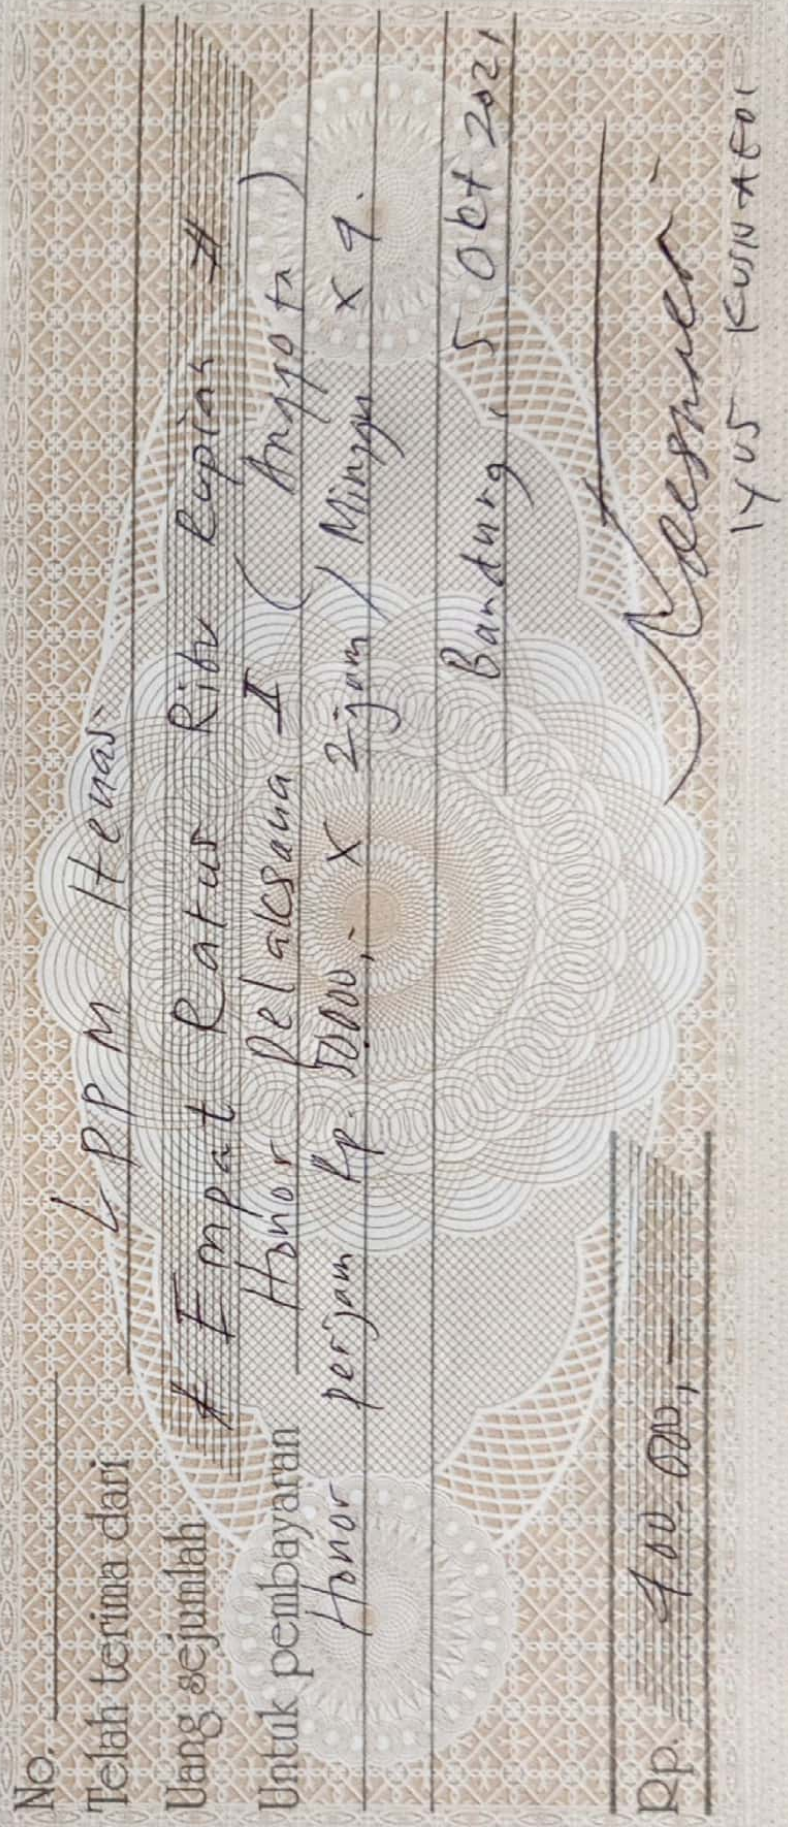 No.
Telah terima dari LPPM Itenas
Uang sejumlah # Empat Ratus Ribu Rupiah #
Untuk pembayaran Honor Pelaksana II (Anggota)
Honor perjam Rp. 50000,- x 2 jam / Minggu x 4.
Bandung, 5 Okt 2021
Rp. 400.000,-
IYUS KUSNAEDI